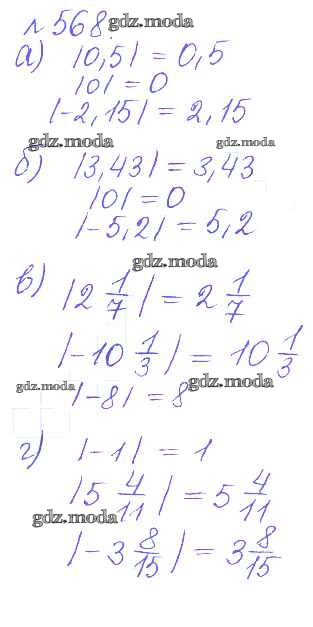 №568. gdz.moda
а) |0,5| = 0,5
|0| = 0
|-2,15| = 2,15
gdz.moda gdz.moda
б) |3,43| = 3,43
|0| = 0
|-5,2| = 5,2
gdz.moda
в) |2 1/7| = 2 1/7
|-10 1/3| = 10 1/3
gdz.moda gdz.moda
|-8| = 8
г) |-1| = 1
|5 4/11| = 5 4/11
gdz.moda
|-3 8/15| = 3 8/15